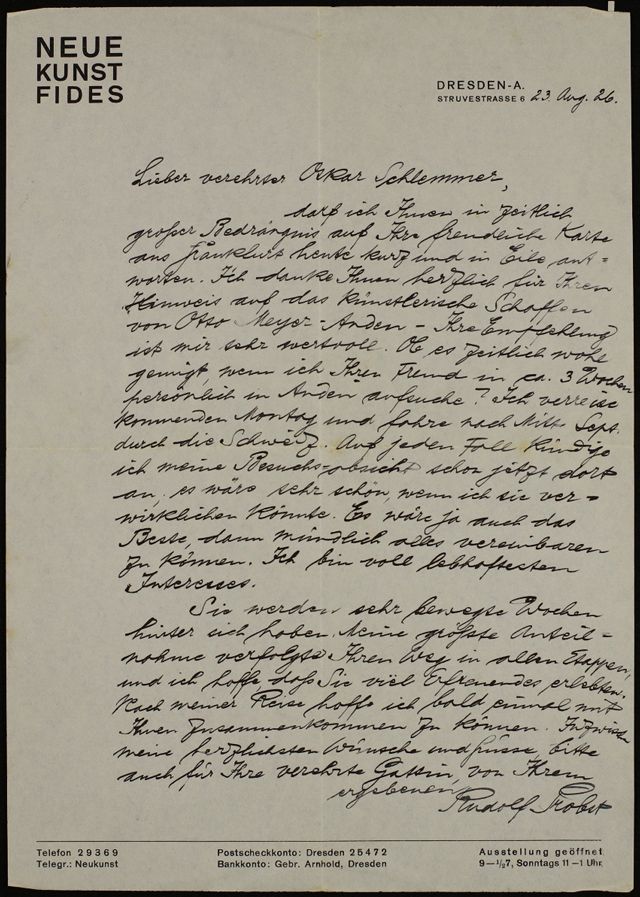 NEUE
KUNST
FIDES
DRESDEN-A.
STRUVESTRASSE 6 23. Aug. 26.
Lieber verehrter Oskar Schlemmer,
darf ich Ihnen in zeitlich
großer Bedrängnis auf Ihre freundliche Karte
aus Frankfurt heute kurz und in Eile ant=
worten. Ich danke Ihnen herzlich für Ihren
Hinweis auf das künstlerische Schaffen
von Otto Meyer-Amden - Ihre Empfehlung
ist mir sehr wertvoll. Ob es zeitlich wohl
genügt, wenn ich Ihren Freund in ca. 3 Wochen
persönlich in Amden aufsuche? Ich verreise
kommenden Montag und fahre nach Mitte Sept.
durch die Schweiz. Auf jeden Fall kündige
ich meine Besuchs-absicht schon jetzt dort
an. es wäre sehr schön, wenn ich sie ver=
wirklichen könnte. Es wäre ja auch das
Beste, dann mündlich alles vereinbaren
zu können. Ich bin voll lebhaftesten
Interesses.
Sie werden sehr bewegte Wochen
hinter sich haben. Meine größte Anteil=
nahme verfolgte Ihren Weg in allen Etappen,
und ich hoffe daß Sie viel Erfreuendes erlebten.
Nach meiner Reise hoffe ich bald einmal mit
Ihnen zusammenkommen zu können. Inzwischen
meine herzlichsten Wünsche und Grüsse, bitte
auch für Ihre verehrte Gattin, von Ihrem
ergebenen Rudolf Probst
Telefon 29369
Telegr.: Neukunst
Postscheckkonto: Dresden 25472
Bankkonto: Gebr. Arnhold, Dresden
Ausstellung geöffnet
9—1/27, Sonntags 11—1 Uhr